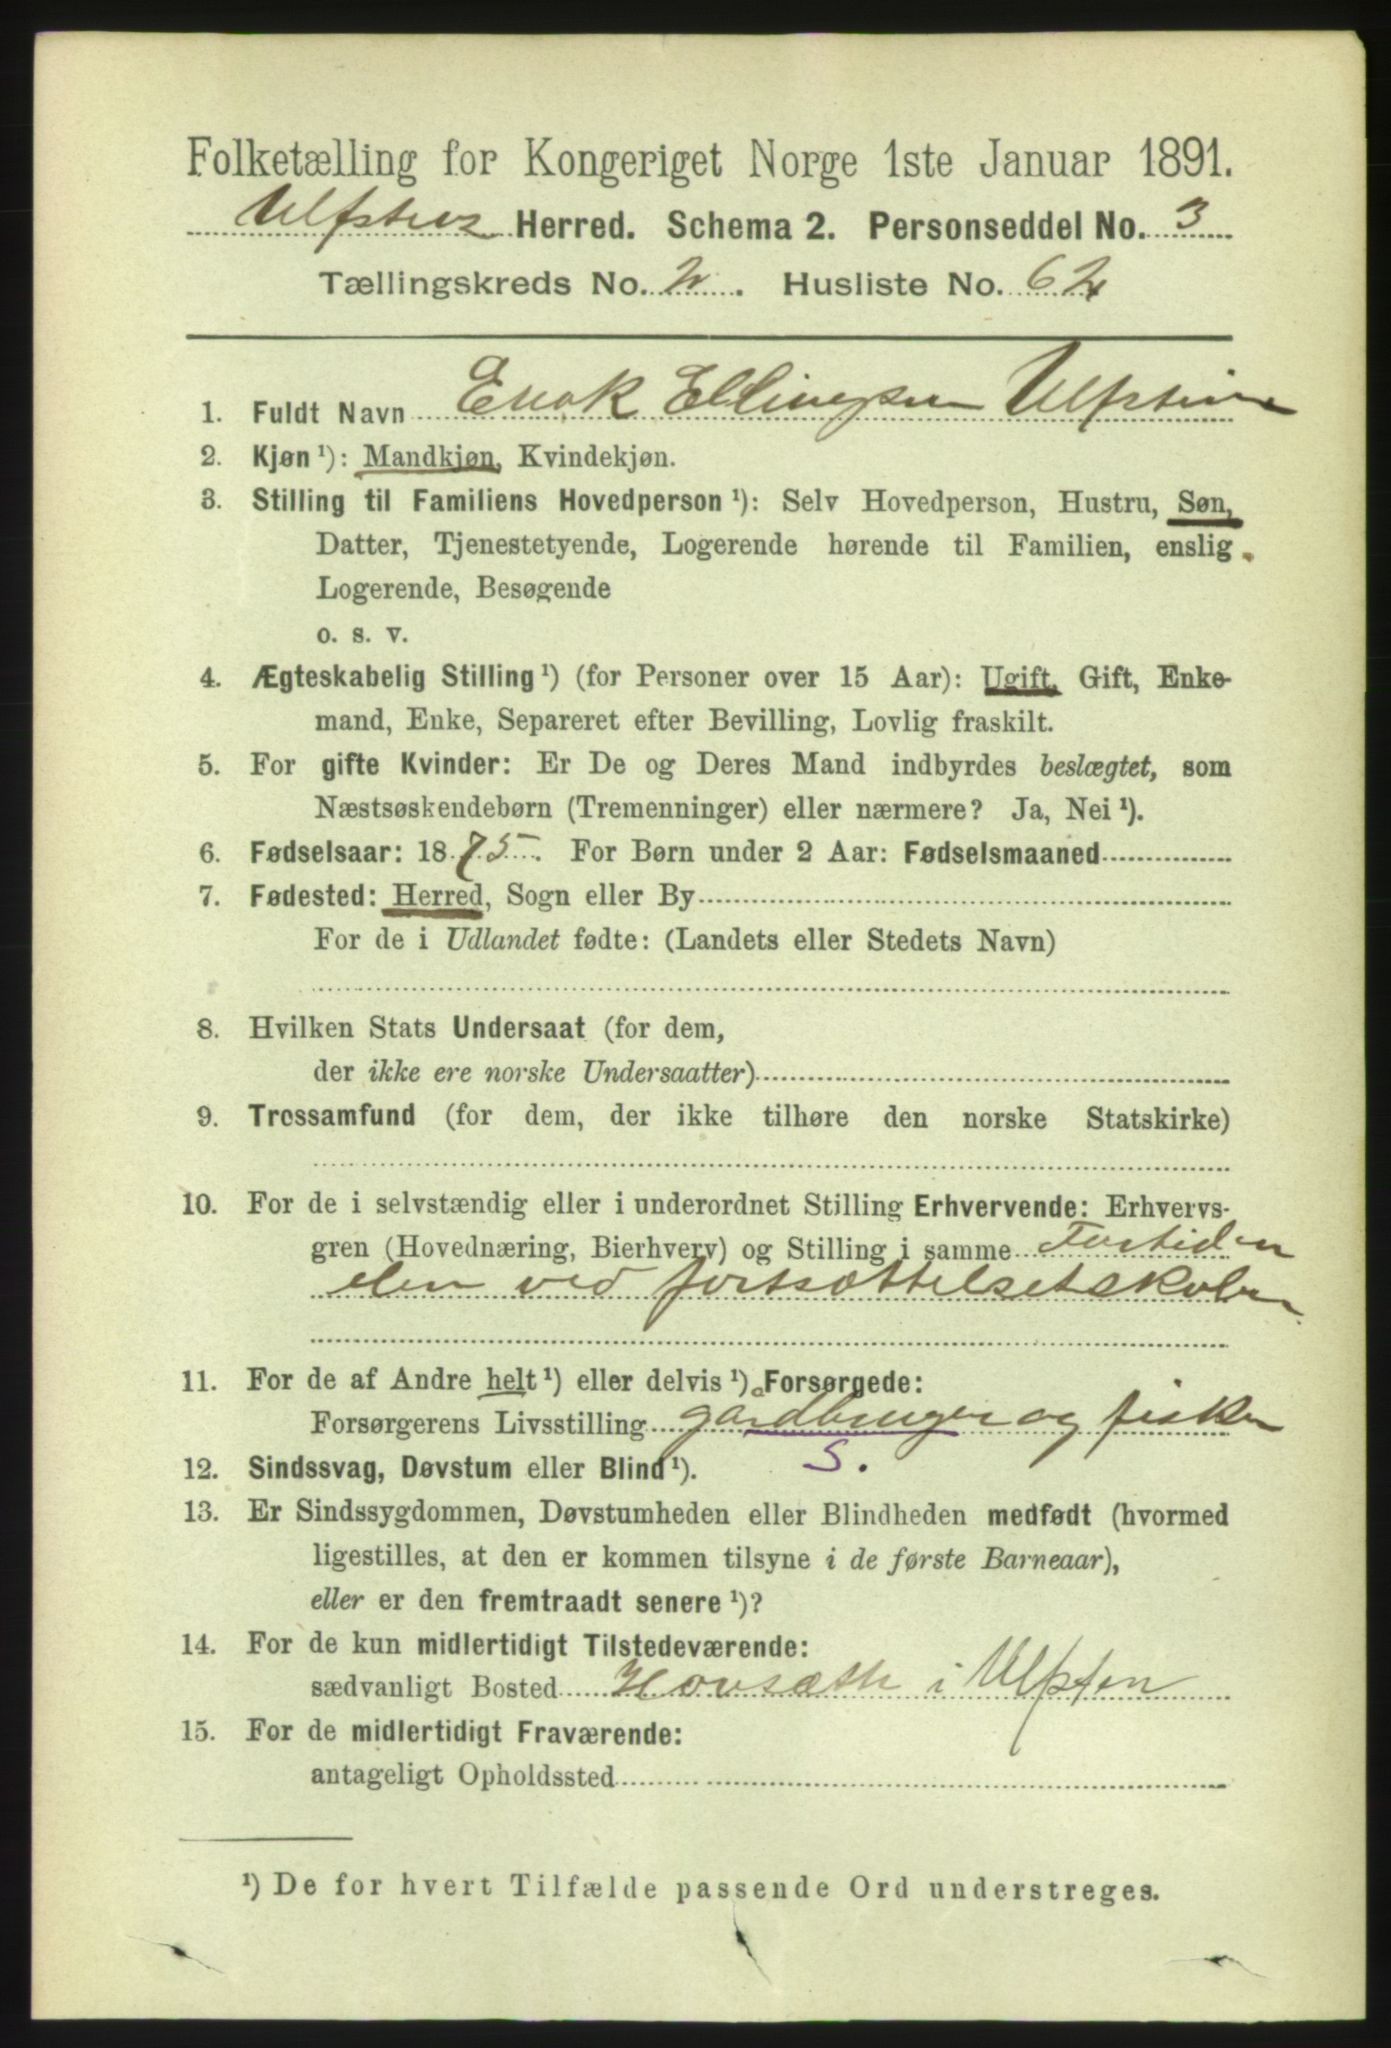 Folketælling for Kongeriget Norge 1ste Januar 1891.
Ulfsten Herred. Schema 2. Personseddel No. 3
Tællingskreds No. 2. Husliste No. 62
1. Fuldt Navn Enok Ellingsen Ulfsten
2. Kjøn ¹): Mandkjøn, Kvindekjøn.
3. Stilling til Familiens Hovedperson ¹): Selv Hovedperson, Hustru, Søn,
Datter, Tjenestetyende, Logerende hørende til Familien, enslig
Logerende, Besøgende
o. s. v.
4. Ægteskabelig Stilling ¹) (for Personer over 15 Aar): Ugift, Gift, Enke-
mand, Enke, Separeret efter Bevilling, Lovlig fraskilt.
5. For gifte Kvinder: Er De og Deres Mand indbyrdes beslægtet, som
Næstsøskendebørn (Tremenninger) eller nærmere? Ja, Nei ¹).
6. Fødselsaar: 1875. For Børn under 2 Aar: Fødselsmaaned
7. Fødested: Herred, Sogn eller By
For de i Udlandet fødte: (Landets eller Stedets Navn)
8. Hvilken Stats Undersaat (for dem,
der ikke ere norske Undersaatter)
9. Trossamfund (for dem, der ikke tilhøre den norske Statskirke)
10. For de i selvstændig eller i underordnet Stilling Erhvervende: Erhvervs-
gren (Hovednæring, Bierhverv) og Stilling i samme Fortiden
elev ved fortsættelsetskolen
11. For de af Andre helt ¹) eller delvis ¹) Forsørgede:
Forsørgerens Livsstilling gårdbruger og fisker
12. Sindssvag, Døvstum eller Blind ¹). S.
13. Er Sindssygdommen, Døvstumheden eller Blindheden medfødt (hvormed
ligestilles, at den er kommen tilsyne i de første Barneaar),
eller er den fremtraadt senere ¹)?
14. For de kun midlertidigt Tilstedeværende:
sædvanligt Bosted Hovsæth i Ulfsten
15. For de midlertidigt Fraværende:
antageligt Opholdssted
¹) De for hvert Tilfælde passende Ord understreges.